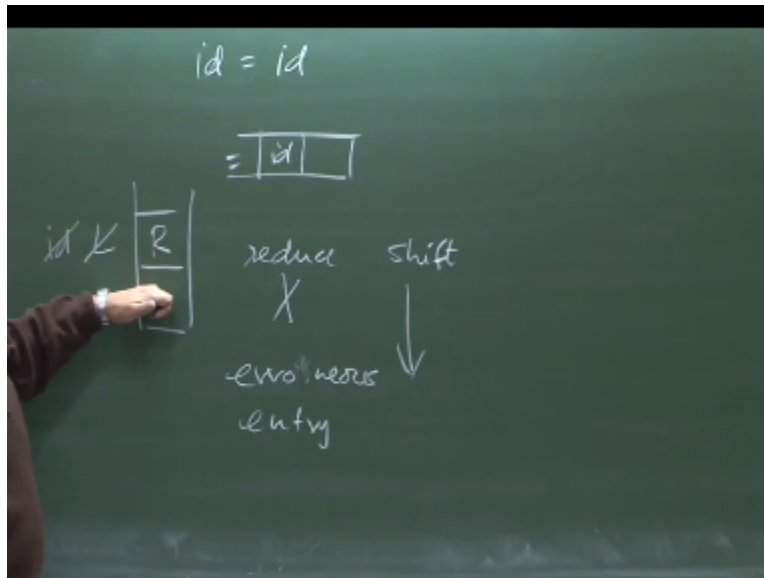 id = id
= id
id L R reduce shift
X
erroneous
entry